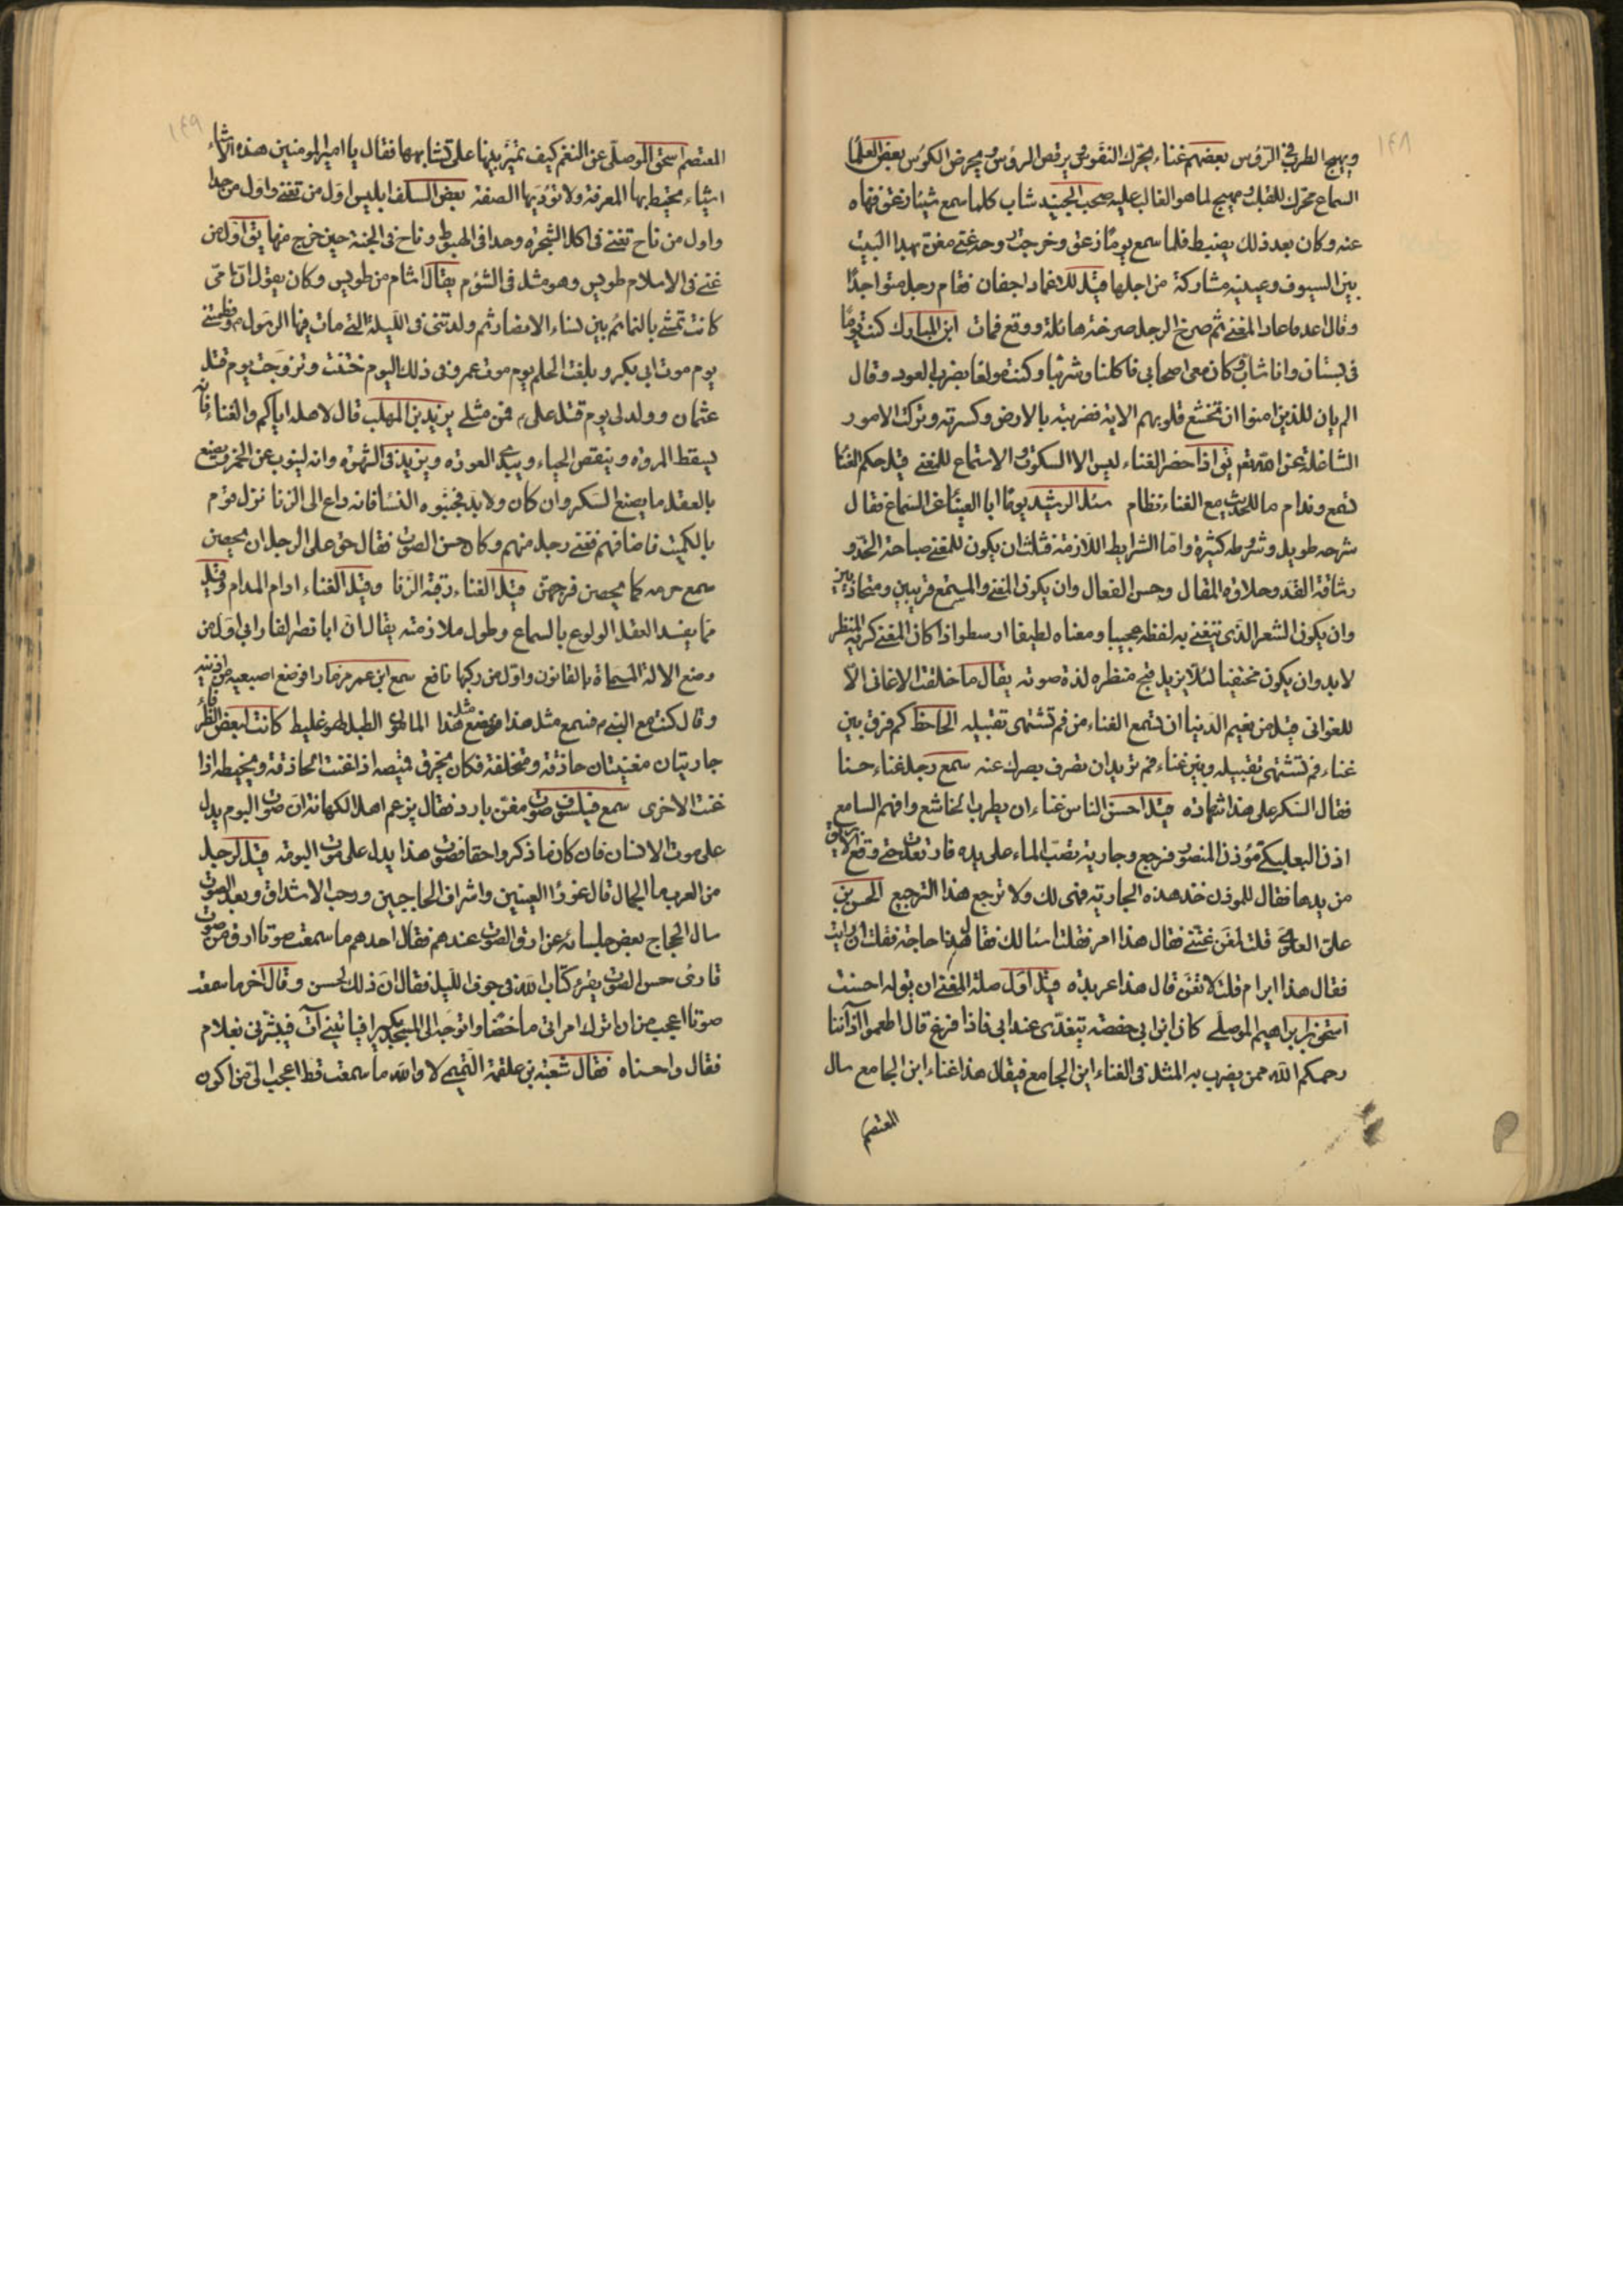 ١٤٨
ويهيج الطرب في الرؤس بعضهم غناء يحرك النفوس ويرقص الرؤس ويحرض الكؤس بعض العلما
السماع محرك للقلب ومهيج لما هو الغالب عليه صحب الجنيد شاب كلما سمع شيئا زعق فنهاه
عنه وكان بعد ذلك يضبط فلما سمع يوما زعق وخرجت روحه غنى مغن بهذا البيت
بين السيوف وعينيه مشاركة من اجلها قيل للاغماد اجفان فقام رجل متواجدا
وقال اعد فاعاد المغني ثم صرخ الرجل صرخة هائلة ووقع فمات ابن المبارك كنت يوما
في بستان وانا شاب وكان معي اصحابي فاكلنا وشربنا وكنت مولعا بضرب العود وقال
الم يان للذين امنوا ان تخشع قلوبهم الاية فضربته بالارض وكسرته وتركت الامور
الشاغلة عن الله تعم يق اذا حضر الغناء ليس الا السكوت والاستماع للمغني قيل حكم الغنا
تسمع وندام ما للحديث مع الغناء نظام سئل الرشيد يوما ابا العينا عن السماع فقال
شرحه طويل وشروطه كثيرة واما الشرايط اللازمة فثلث ان يكون للمغني صباحة الخد و
رشاقة القد وحلاوة المقال وحسن الفعال وان يكون المغني والمستمع قريبين ومتحاذيين
وان يكون الشعر الذي يتغنى به لفظه عجيبا ومعناه لطيفا ارسطو اذا كان المغني كريه المنظر
لا بد وان يكون مختفيا لئلا يزيل قبح منظره لذة صوته يقال ما خلقت الاغاني الا
للغواني قيل من نعيم الدنيا ان تسمع الغناء من فم تشتهي تقبيله الجاحظ كم فرق بين
غناء فم تشتهي تقبيله وبين غناء فم تريد ان تصرف بصرك عنه سمع رجل غناء حسنا
فقال السكر على هذا شهادة قيل احسن الناس غناء ان يطرب الخاشع وافهم السامع
اذن البعلبكي مؤذن المنصور فرجع وجارية تصب الماء على يده فارتعدت حتى وقع الابريق
من يدها فقال للموذن خذ هذه الجارية فهي لك ولا ترجع هذا الترجيع الحسن بن
على العلوي قلت لمغن غنني فقال هذا امر فقلت اسئالك فقال هذا حاجة فقلت ان رايت
فقال هذا ابرام قلت لا تغن قال هذا عربدة قيل اول صلة المغني ان يقول احسنت
اسحق بن ابراهيم الموصلي كان ابن ابي حفصة يتغدى عند ابي فاذا فرغ قال اطعموا آذاننا
رحمكم الله ممن يضرب به المثل في الغناء ابن الجامع فيقال هذا غناء ابن الجامع سال
المعتصم
١٤٩
المعتصم اسحق الموصلي عن النغم كيف تميز بينها على تشابهها فقال يا امير المومنين هذه الاشياء
اشياء يحيط بها المعرفة ولا تؤديها الصفة بعض السلف ابليس اول من تغنى واول من حدا
واول من ناح تغنى في اكل الشجرة وحدا في الهبوط وناح في الجنة حين خرج منها يق اول من
غنى في الاسلام طويس وهو مثل في الشؤم يقال اشام من طويس وكان يقول ان امي
كانت تمشي بالنمائم بين نساء الانصار ثم ولدتني في الليلة التي مات فيها الرسول ص وفطمتني
يوم موت ابي بكر وبلغت الحلم يوم موت عمر وفي ذلك اليوم ختنت وتزوجت يوم قتل
عثمان وولد لي يوم قتل علي ع فمن مثلي يزيد بن المهلب قال لاهله اياكم والغناء فانه
يسقط المروة وينقص الحياء ويبدي العورة ويزيد في الشهوة وانه لينوب عن الخمر ويصنع
بالعقل ما يصنع السكر وان كان ولا بد فجنبوه النسا فانه داع الى الزنا نزل قوم
بالكميت فاضافهم فغنى رجل منهم وكان حسن الصوت فقال حق على الرجل ان يحصن
سمع حرمه كما يحصن فرجهن قيل الغناء رقية الزنا وقيل الغناء ادام المدام وقيل
مما يفسد العقل الولوع بالسماع وطول ملازمته يقال ان ابا نصر الفارابي اول من
وضع الالة المسماة بالقانون واول من ركبها نافع سمع ابن عمر مزمارا فوضع اصبعيه في اذنيه
وقال كنت مع النبي ص فسمع مثل هذا وصنع مثل هذا المالهي الطبل لهو غليط كانت لبعض الظرفاء
جاريتان مغنيتان حاذقة ومتخلفة فكان يخرق قميصه اذا غنت الحاذقة ويخيطه اذا
غنت الاخرى سمع فيلسوف صوت مغن بارد فقال يزعم اهل الكهانة ان صوت البوم يدل
على موت الانسان فان كان ما ذكروا حقا فصوت هذا يدل على موت البومة قيل لرجل
من العرب ما الجمال قال غوؤر العينين واشراف الحاجبين ورحب الاشداق وبعد الصوت
سال الحجاج بعض جلسائه عن ارق الصوت عندهم فقال احدهم ما سمعت صوتا ارق من صوت
قارئ حسن الصوت يقرء كتاب الله في جوف الليل فقال ان ذلك لحسن وقال آخر ما سمعت
صوتا اعجب من ان اترك امراتي ماخضا واتوجه الى المسجد بكيرا فياتيني آت فيبشرني بغلام
فقال واحسناه فقال شعبة بن علقمة التميمي لا والله ما سمعت قط اعجب الي من ان اكون